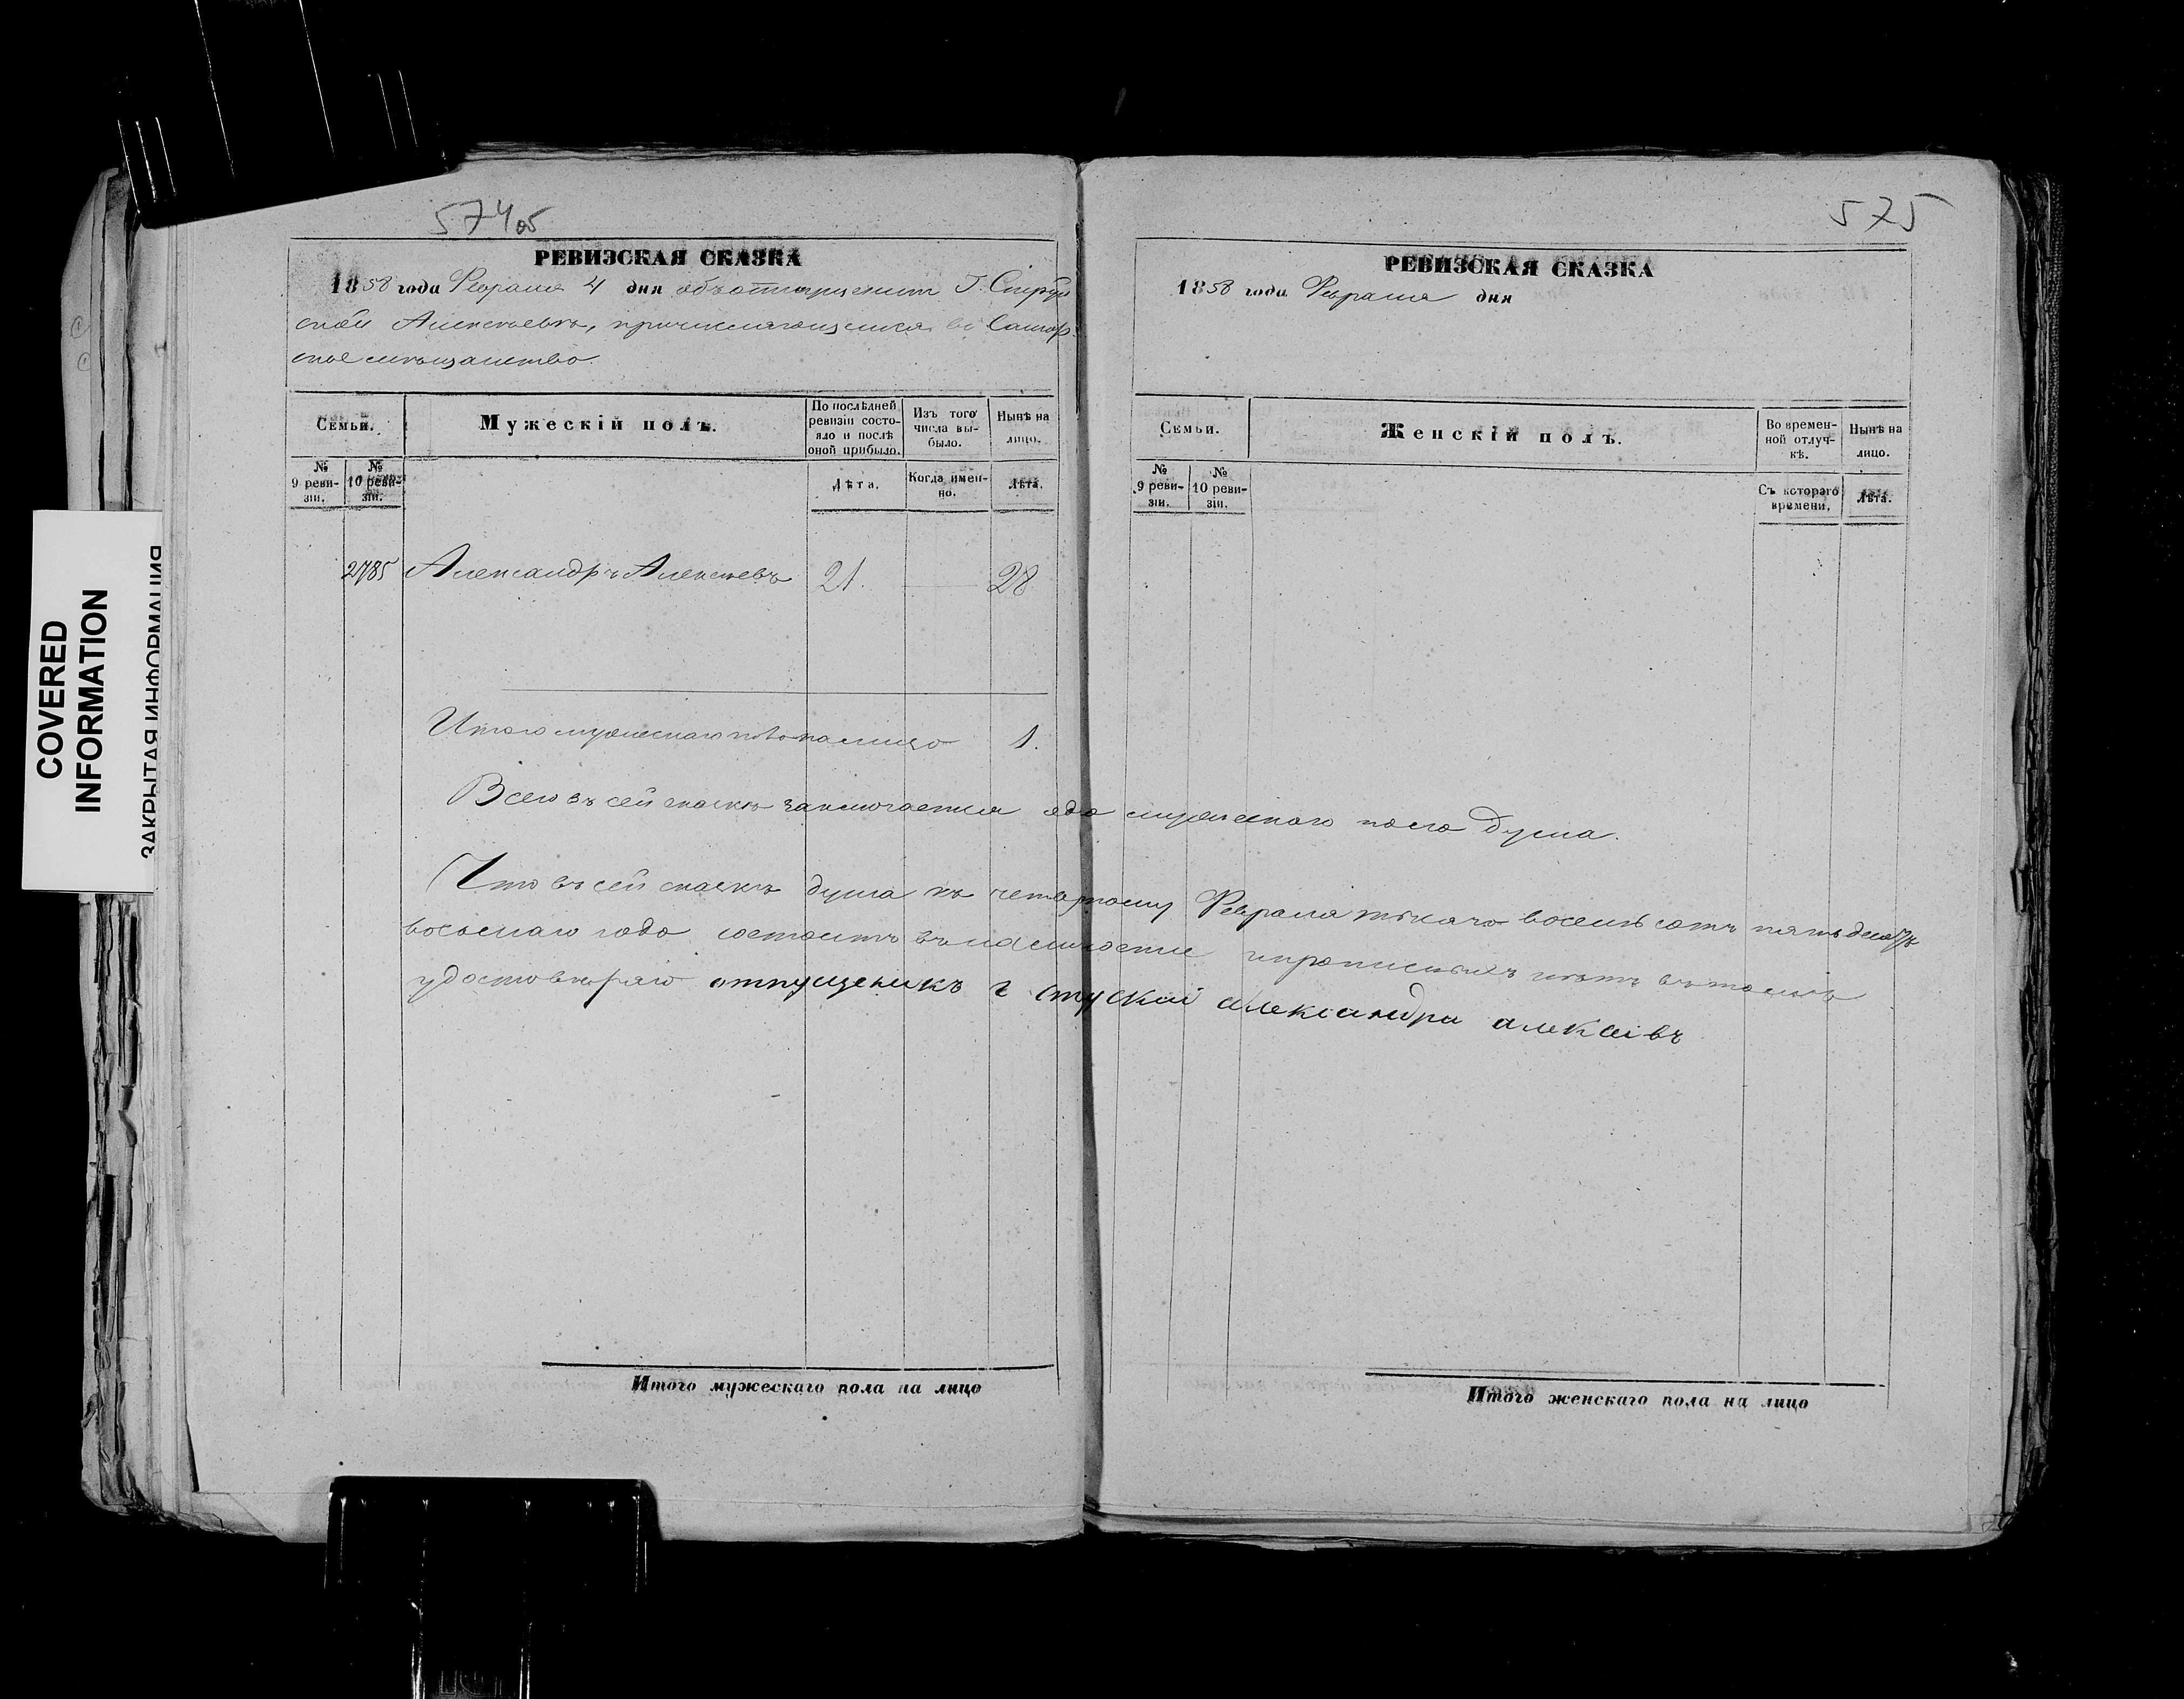 574об
РЕВИЗСКАЯ СКАЗКА
1858 года Февраля 4 дня объ отпущенит Г. Струй
ской Алексѣевѣ, причисляющемся въ Самар
ское мѣщанство.
Семьи.
Мужескій полъ.
По послѣдней ревизіи состояло и послѣ оной прибыло.
Изъ того числа выбыло.
Нынѣ на лицо.
№ 9 ревизіи.
№ 10 ревизіи.
Лѣта.
Когда именно.
Лѣта.
2785 Александръ Алексѣевъ 21. 28
Итого мужескаго пола на лицо 1.
575
РЕВИЗСКАЯ СКАЗКА
1858 года Февраля дня
Семьи.
Женскій полъ.
Во временной отлучкѣ.
Нынѣ на лицо.
№ 9 ревизіи.
№ 10 ревизіи.
Съ котораго времени.
Лѣта.
Всего въ сей сказкѣ заключается одна мужескаго пола душа.
Что въ сей сказкѣ душа къ четвертому Февраля тысяча восемьсотъ пятьдесятъ
восьмаго года состоитъ въ наличности и прописныхъ нѣтъ въ томъ
удостовѣряю отпущеникъ г Струской александра алексівъ
Итого мужескаго пола на лицо
Итого женскаго пола на лицо
COVERED
INFORMATION
ЗАКРЫТАЯ ИНФОРМАЦИЯ